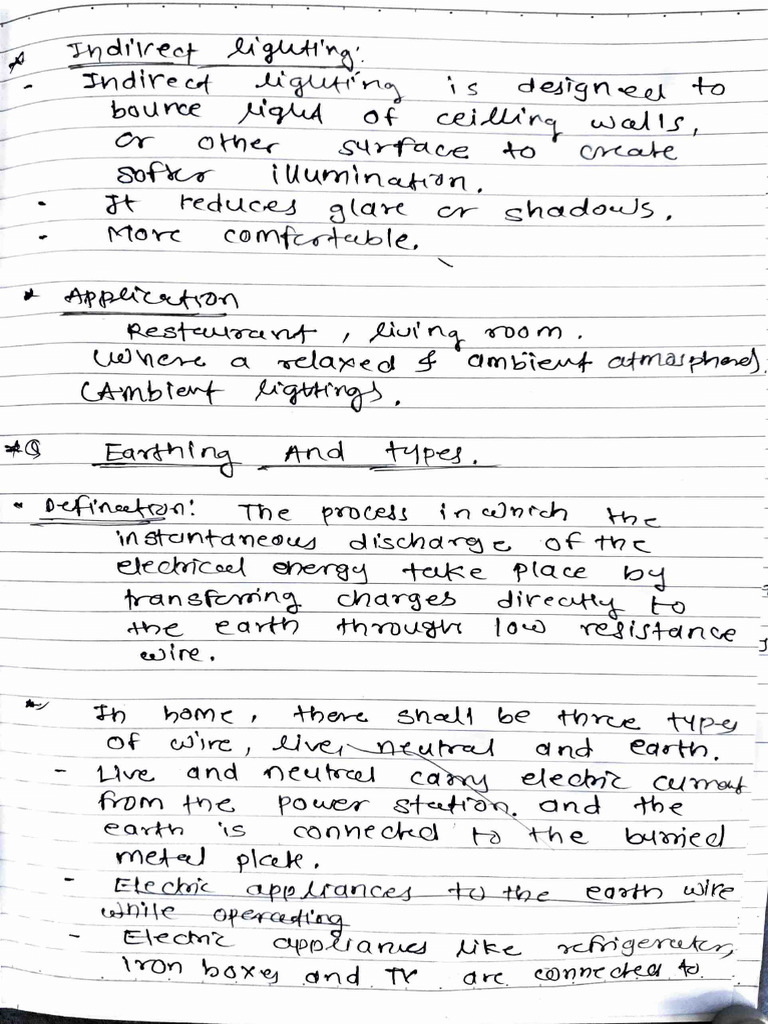 * Indirect lighting:
- Indirect lighting is designed to
bounce light of ceilling walls,
or other surface to create
softer illumination.
• It reduces glare or shadows.
• More comfortable.
* Application
Restaurant, living room.
(Where a relaxed & ambient atmosphere).
(Ambient lighttings).
*Q Earthing And types.
• Defination: The process in which the
instantaneous discharge of the
electrical energy take place by
transferring charges directly to
the earth through low resistance
wire.
In home, there shall be three types
of wire, live, neutral and earth.
- Live and neutral carry electric current
from the power station. and the
earth is connected to the burried
metal plate.
- Electric appliances to the earth wire
while operating
- Electric appliances like refrigerator,
Iron boxes and TV are connected to